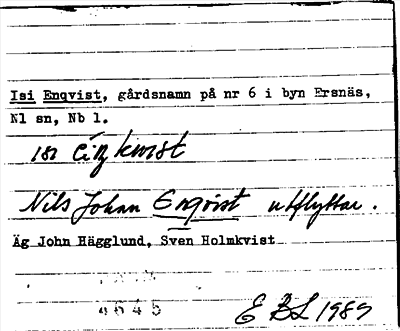 Isi Enqvist, gårdsnamn på nr 6 i byn Ersnäs,
Nl sn, Nb l.
Nils Johan Enqvist utflyttar.
Äg John Hägglund, Sven Holmkvist
4645
E BL 1989